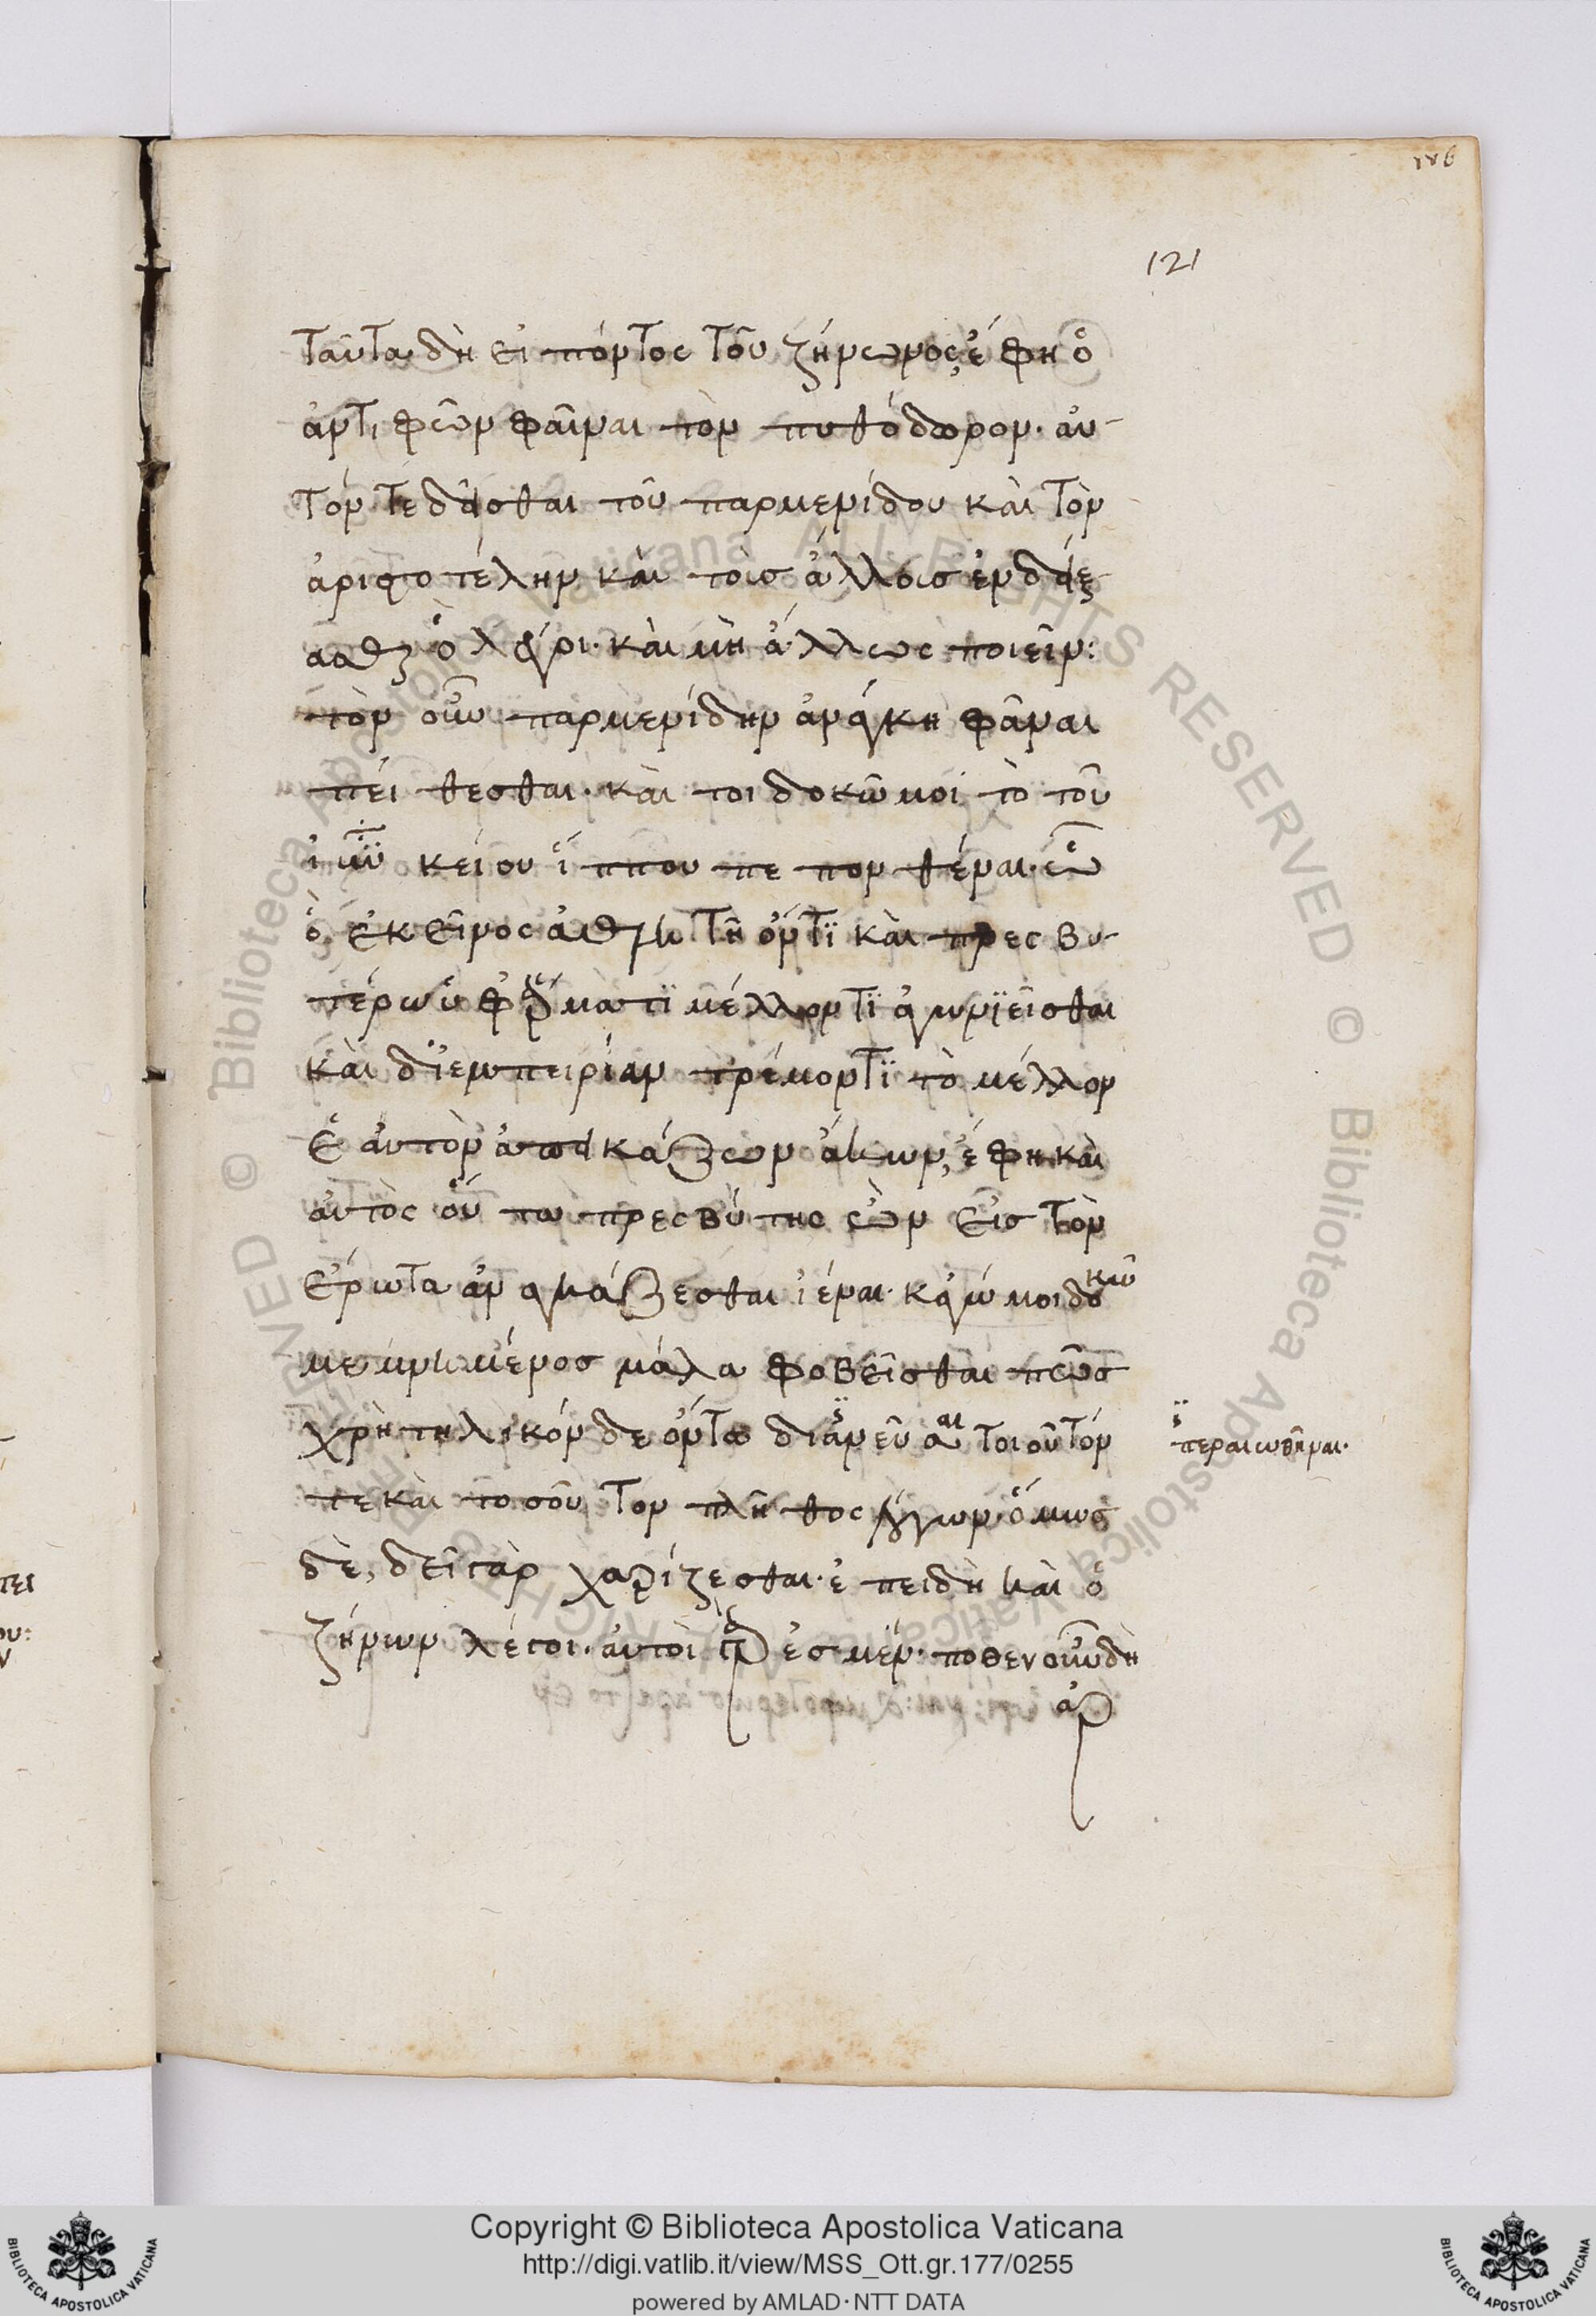 ταῦτα δὴ εἰπόντος τοῦ ζήνωνος, ἔφη ὁ
ἀντιφῶν φάναι τὸν πυθόδωρον· αὐ-
τόν τε δεῖσθαι τοῦ παρμενίδου καὶ τὸν
ἀριστοτέλην καὶ τοὺς ἄλλους ἐνδείξ-
ασθαι ὃ λέγοι· καὶ μὴ ἄλλως ποιεῖν:
τὸν οὖν παρμενίδην ἀνάγκη φάναι
πείθεσθαι· καὶ τοι δοκῶ μοί τὸ τοῦ
ἰβυκείου ἵππου πεπονθέναι· ᾧ
ὁ ἐκεῖνος ἀθλητῆ ὄντϊ καὶ πρεσβυ-
τέρω ὑφ' ἅρματϊ μέλλοντϊ ἀγωνϊεῖσθαι
καὶ δϊ' ἐμπειρίαν τρέμοντϊ τὸ μέλλον
ἑαυτὸν ἀπεικάζων ἄκων, ἔφη καὶ
αὐτὸς οὕτω πρεσβύτης ὢν εἰς τὸν
ἔρωτα ἀναγκάζεσθαι ἰέναι· κἀγώ μοι δοκῶ
μεμνημένος μάλα φοβεῖσθαι πῶς
χρὴ τηλικόνδε ὄντα διανεῦσαι τοιοῦτόν
περαιωθῆναι·
τε καὶ τοσοῦτον πλῆθος λόγων· ὅμως
δὲ, δεῖ γὰρ χαρίζεσθαι· ἐπειδὴ καὶ ὁ
ζήνων λέγει· αὐτοὶ γάρ ἐσμέν· ποθεν οὖν δὴ
ἀρ
121
Copyright © Biblioteca Apostolica Vaticana
http://digi.vatlib.it/view/MSS_Ott.gr.177/0255
powered by AMLAD·NTT DATA